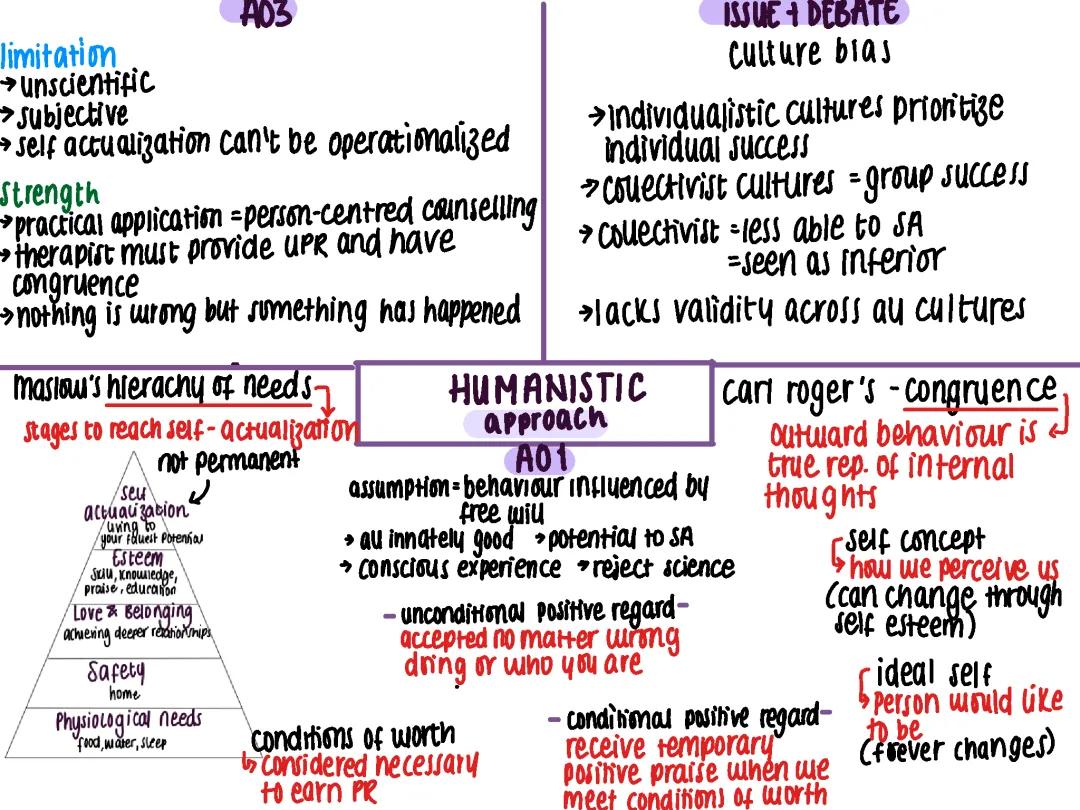 AO3
limitation
→ unscientific
→ subjective
→ self actualization can't be operationalized
Strength
→ practical application = person-centred counselling
→ therapist must provide UPR and have
congruence
→ nothing is wrong but something has happened
ISSUE + DEBATE
culture bias
→ individualistic cultures prioritize
individual success
→ collectivist cultures = group success
→ collectivist = less able to SA
= seen as inferior
→ lacks validity across all cultures
HUMANISTIC
approach
maslow's hierachy of needs
stages to reach self-actualization
not permanent
self
actualization
living to
your fullest potential
Esteem
skill, knowledge,
praise, education
Love & Belonging
achieving deeper relationships
Safety
home
Physiological needs
food, water, sleep
conditions of worth
considered necessary
to earn PR
AO1
assumption = behaviour influenced by
free will
→ all innately good → potential to SA
→ conscious experience → reject science
- unconditional positive regard -
accepted no matter wrong
doing or who you are
- conditional positive regard -
receive temporary
positive praise when we
meet conditions of worth
carl roger's - congruence
outward behaviour is
true rep. of internal
thoughts
self concept
how we perceive us
(can change through
self esteem)
ideal self
person would like
to be
(forever changes)